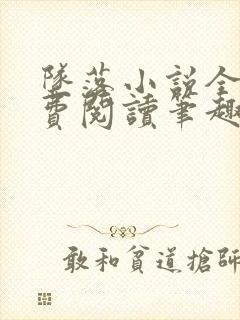 墜落小說全
費閱讀筆趣
敢和貧道搶師